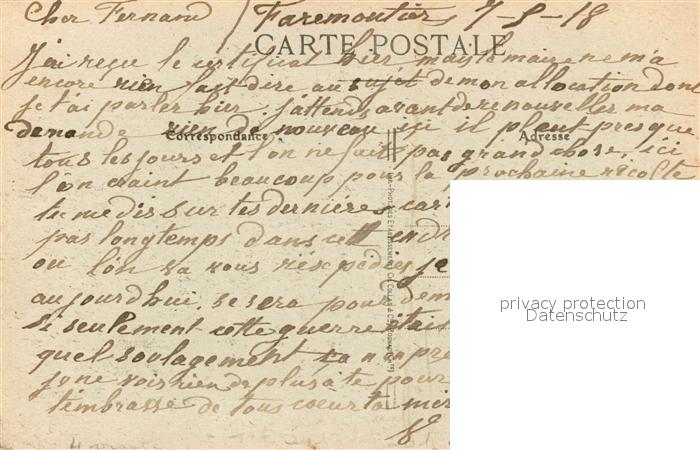 Cher Fernand / Faremoutiers 7-5-18
CARTE POSTALE
J'ai reçu le certificat hier mais le maire ne m'a
encore rien fait dire au sujet de mon allocation dont
je t'ai parler hier. j'attends avant de renouveller ma
demande rien de nouveau ici il pleut presque
Correspondance Adresse
tous les jours et l'on ne fait pas grand chose, ici
l'on craint beaucoup pour la prochaine récolte
tu me dis sur tes dernières cart
pas longtemps dans cett endr
ou l'on va vous réexpédies je
aujourdhui, se sera pour dem
si seulement cette guerre était
quel soulagement
je ne vois rien de plus a te pour
t'embrasse de tous coeur ta mèr
privacy protection
Datenschutz